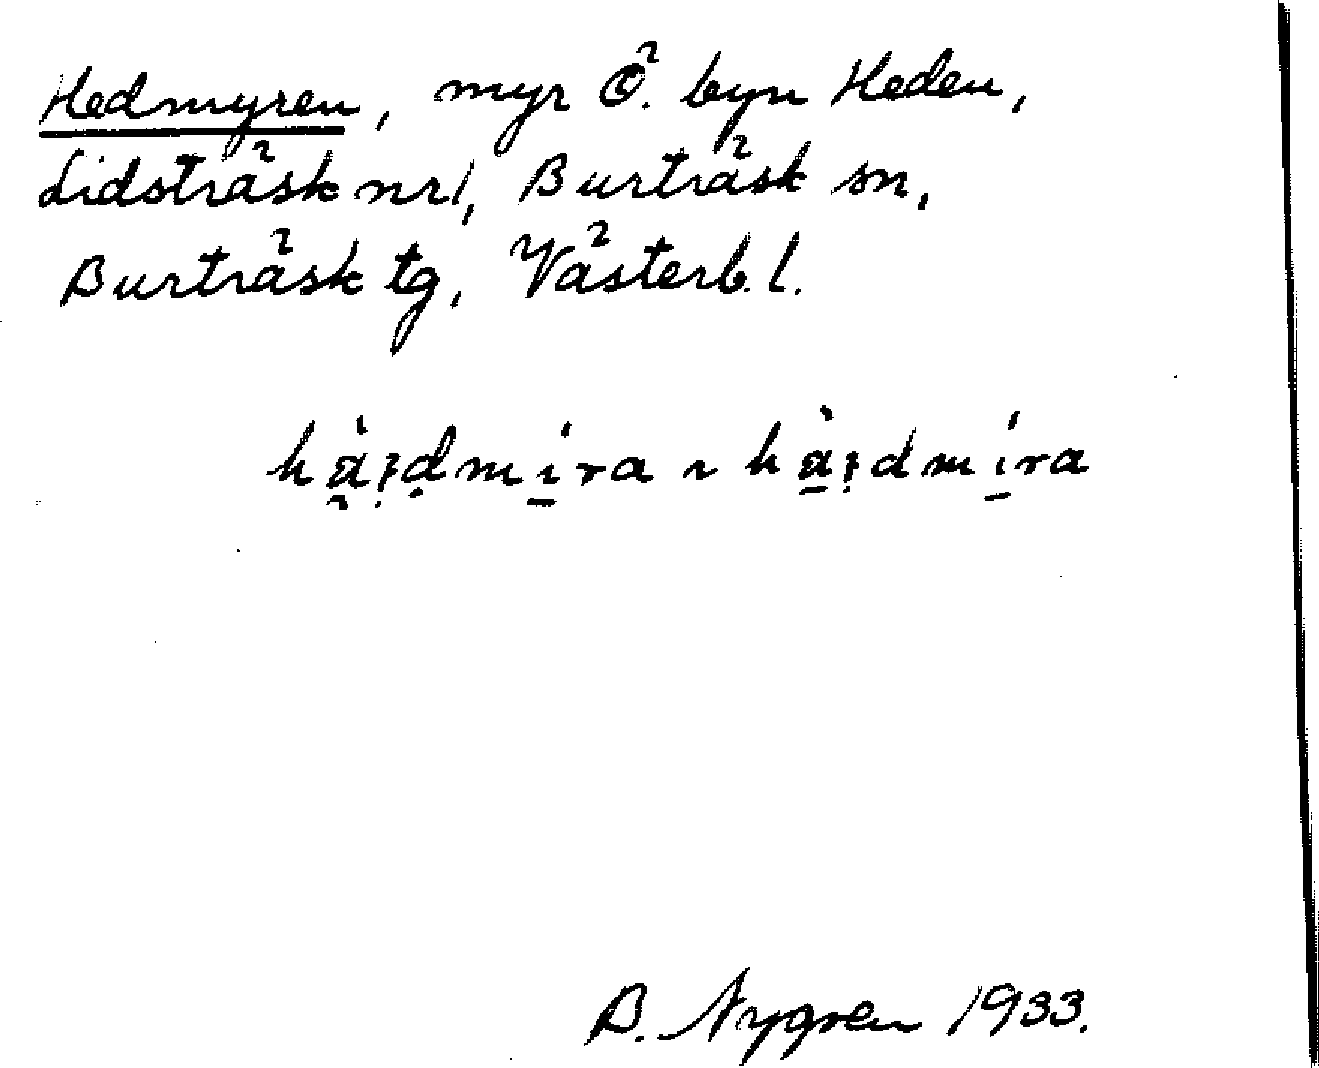 Hedmyren, myr Ö. byn Heden,
Lidsträsk nr 1, Burträsk sn,
Burträsk tg, Västerb. l.
B. Nygren 1933.